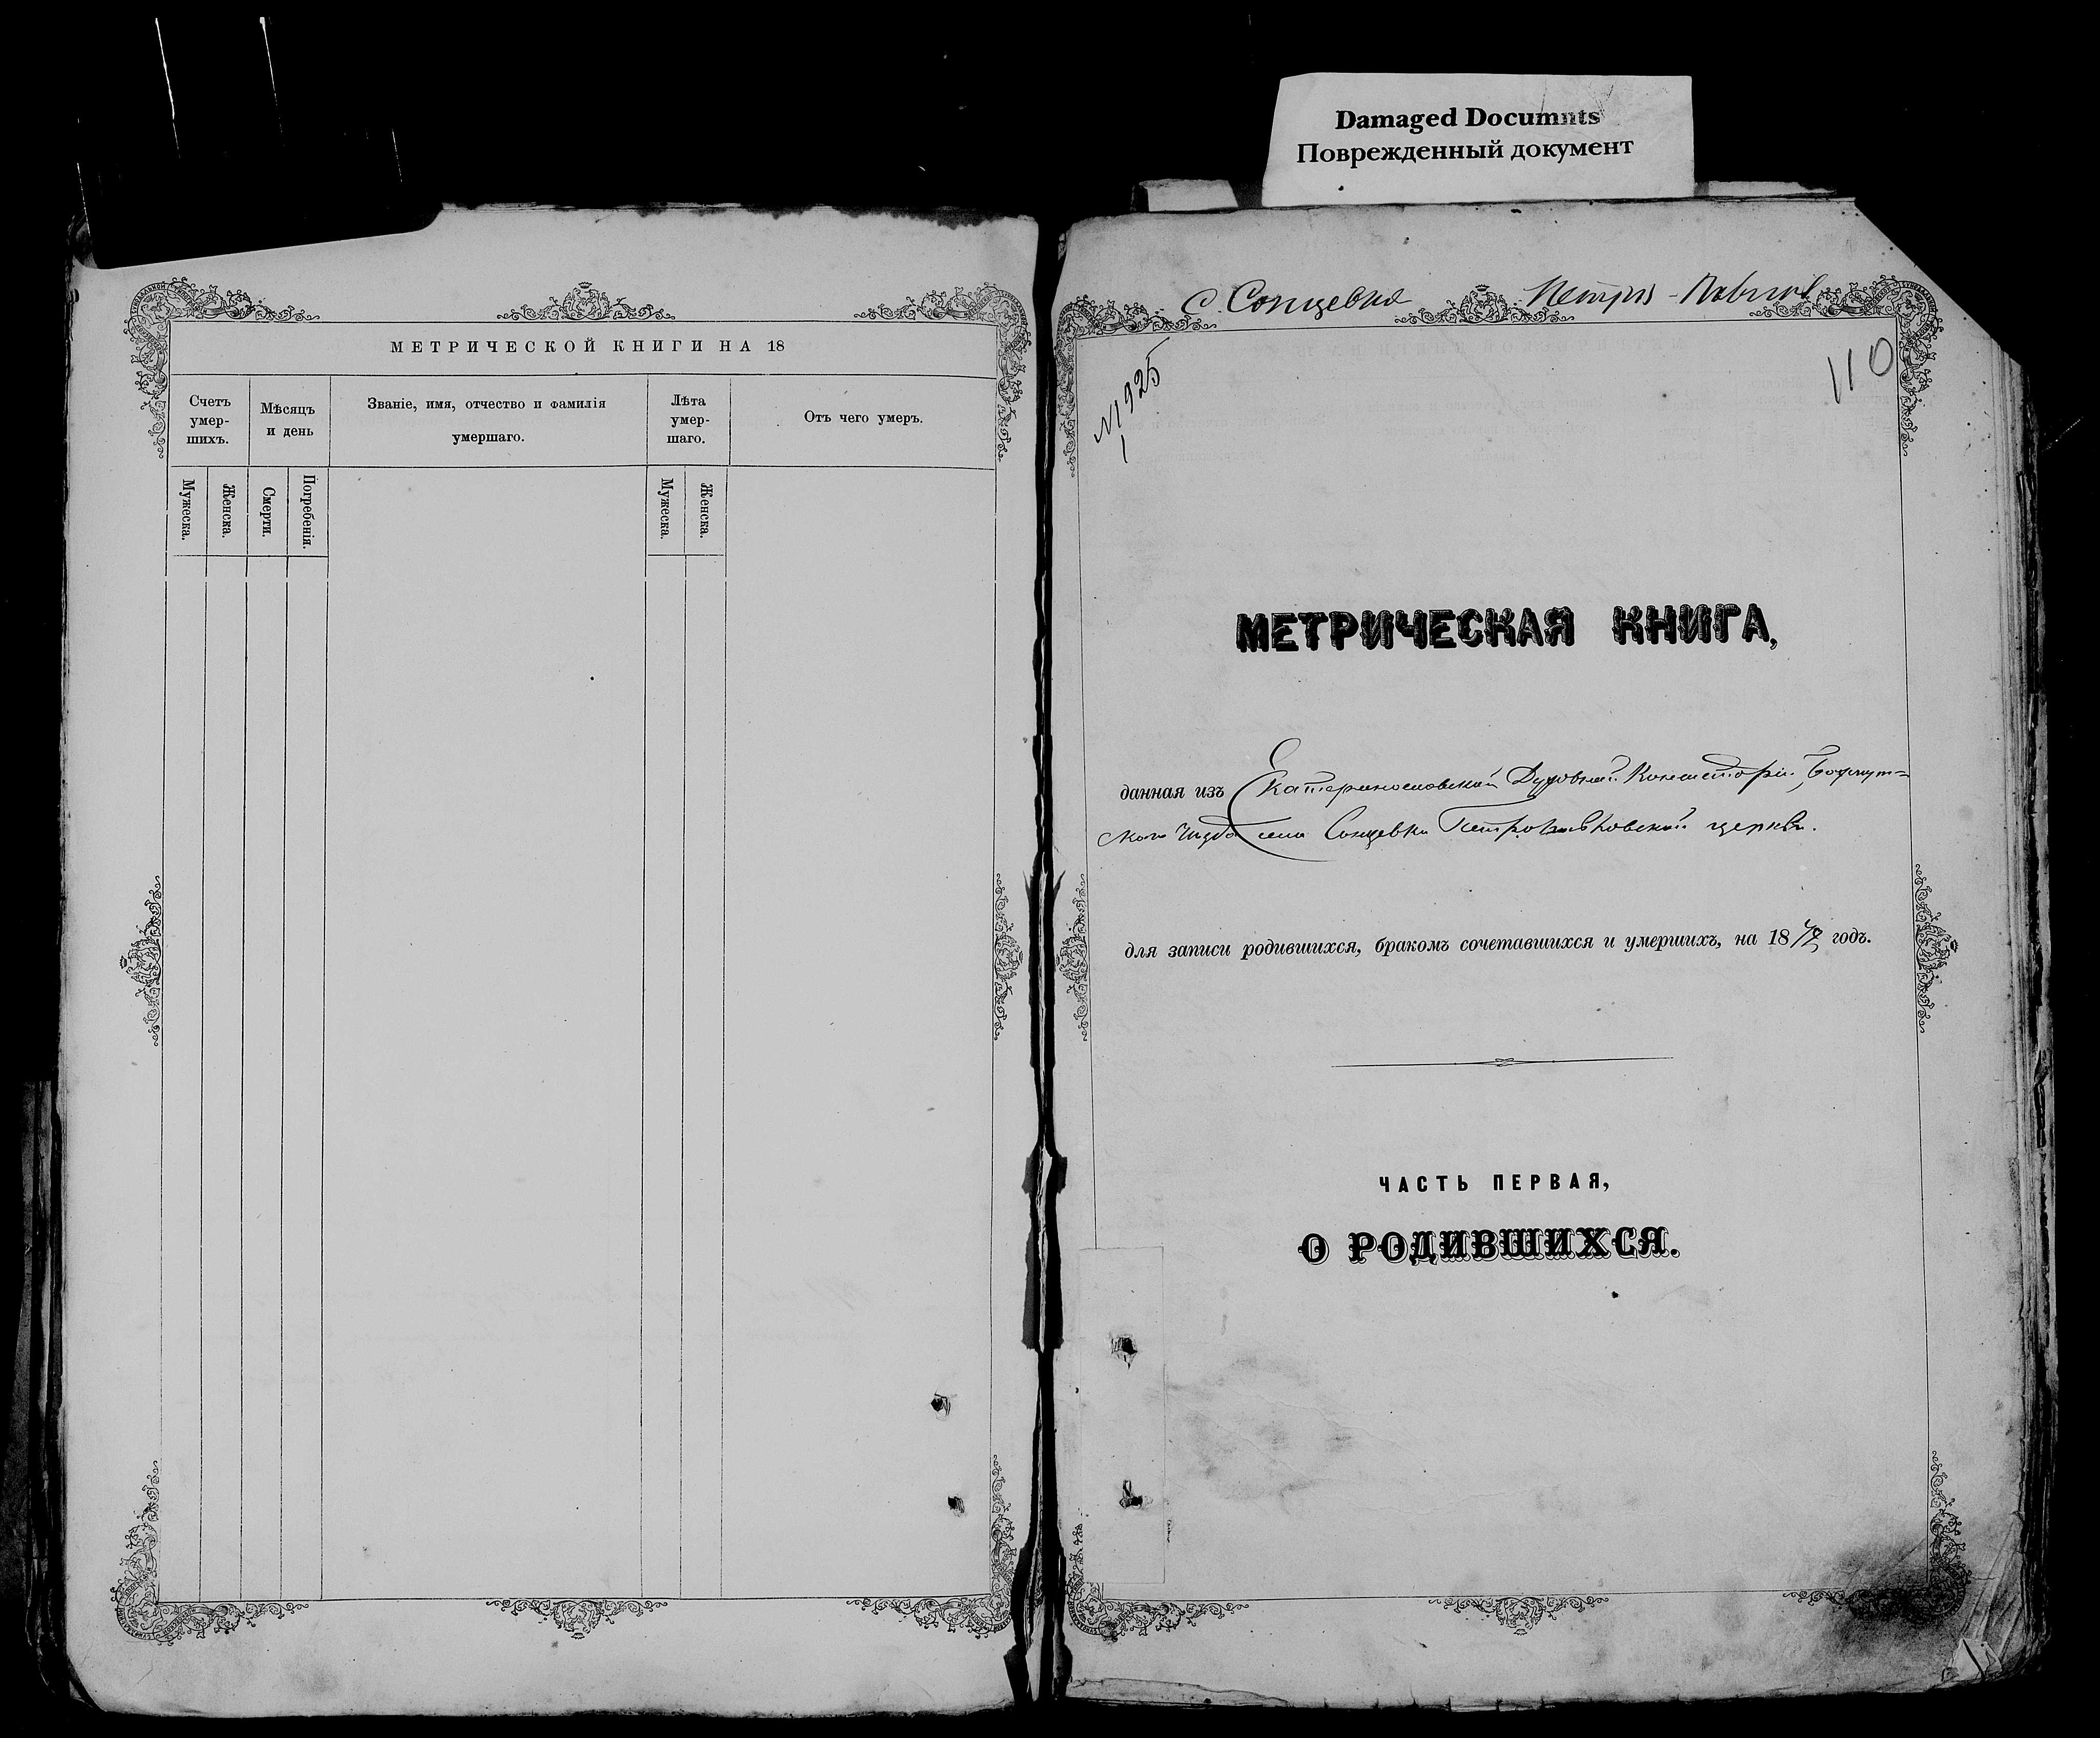 Damaged Documnts
Поврежденный документ
МЕТРИЧЕСКОЙ КНИГИ НА 18
Счетъ
умер-
шихъ.
Мѣсяцъ
и день
Званіе, имя, отчество и фамилія
умершаго.
Лѣта
умер-
шаго.
Отъ чего умеръ.
Мужеска.
Женска.
Смерти.
Погребенія.
Мужеска.
Женска.
с. Сонцевка Петро-Павлов
№ 1925
1
110
МЕТРИЧЕСКАЯ КНИГА,
данная изъ Екатеринославской Духовной Консисторіи, Бахмут=
скаго уѣзда села Сонцевки Петропавловской церкви.
для записи родившихся, бракомъ сочетавшихся и умершихъ, на 18 годъ.
ЧАСТЬ ПЕРВАЯ,
О РОДИВШИХСЯ.